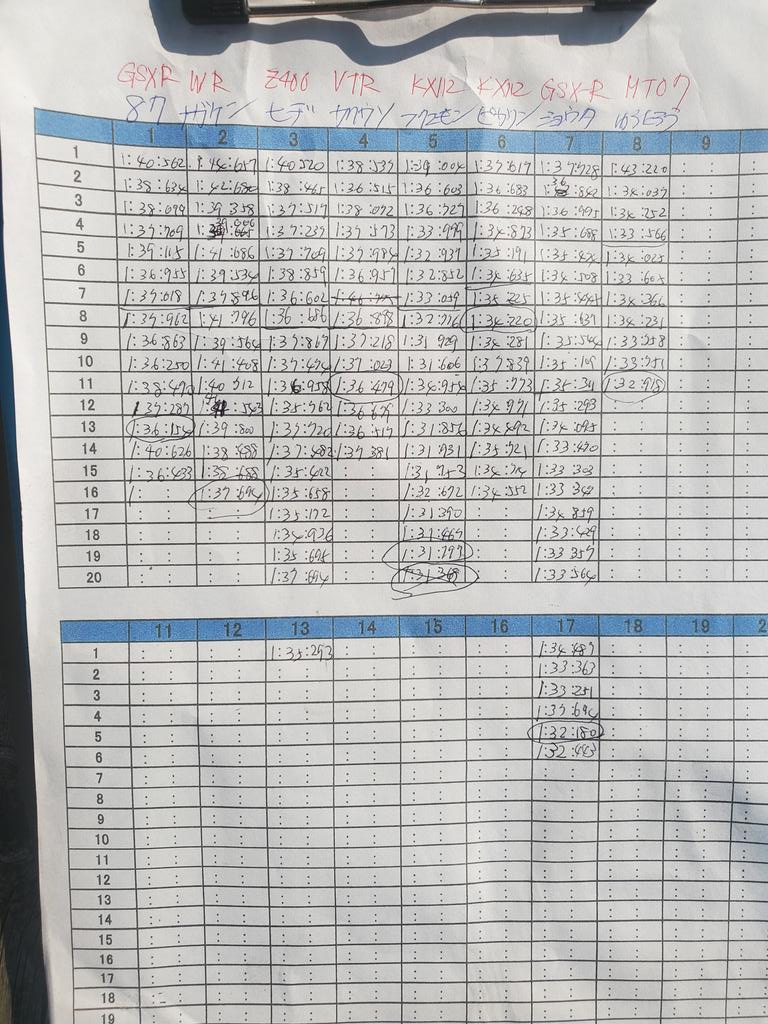 GSXR WR Z400 VTR KX112 KX112 GSX-R MT07
87 ヒデ ショウタ
1 2 3 4 5 6 7 8 9
1 1:40:562 1:40:520 1:38:537 1:39:004 1:37:617 1:37:728 1:43:220
2 1:38:634 1:38:465 1:36:515 1:36:603 1:36:683 1:34:037
3 1:38:099 1:39:358 1:37:517 1:38:072 1:36:727 1:36:248 1:36:995 1:34:252
4 1:37:709 1:37:237 1:37:573 1:33:999 1:34:873 1:35:688 1:33:566
5 1:39:115 1:41:086 1:37:709 1:37:984 1:32:937 1:35:191 1:34:025
6 1:36:955 1:39:534 1:38:859 1:36:957 1:32:852 1:34:635 1:34:508 1:33:605
7 1:37:018 1:37:896 1:36:602 1:33:059 1:35:225 1:35:445 1:34:366
8 1:37:962 1:41:796 1:36:686 1:36:898 1:32:776 1:34:220 1:35:637 1:34:231
9 1:36:863 1:39:564 1:37:867 1:37:218 1:31:929 1:34:281 1:35:544 1:33:758
10 1:36:250 1:41:408 1:37:474 1:37:023 1:31:606 1:37:839 1:35:109 1:33:751
11 1:38:490 1:40:312 1:36:958 1:36:479 1:34:954 1:35:773 1:35:311 1:32:918
12 1:37:287 1:35:762 1:36:679 1:33:300 1:34:971 1:35:293
13 1:36:154 1:39:800 1:37:720 1:36:517 1:31:856 1:34:492 1:34:595
14 1:40:626 1:38:488 1:37:482 1:37:381 1:31:931 1:35:721 1:33:470
15 1:36:433 1:38:688 1:35:422 1:31:753 1:34:714 1:33:303
16 1: : 1:37:694 1:35:658 1:32:672 1:34:552 1:33:342
17 1:35:172 1:31:390 1:34:859
18 1:34:926 1:31:469 1:33:429
19 1:35:695 1:31:197 1:33:357
20 1:37:694 1:31:368 1:33:564
11 12 13 14 15 16 17 18 19 2
1 1:35:293 1:34:487
2 1:33:363
3 1:33:251
4 1:33:694
5 1:32:180
6 1:32:443
7
8
9
10
11
12
13
14
15
16
17
18
19